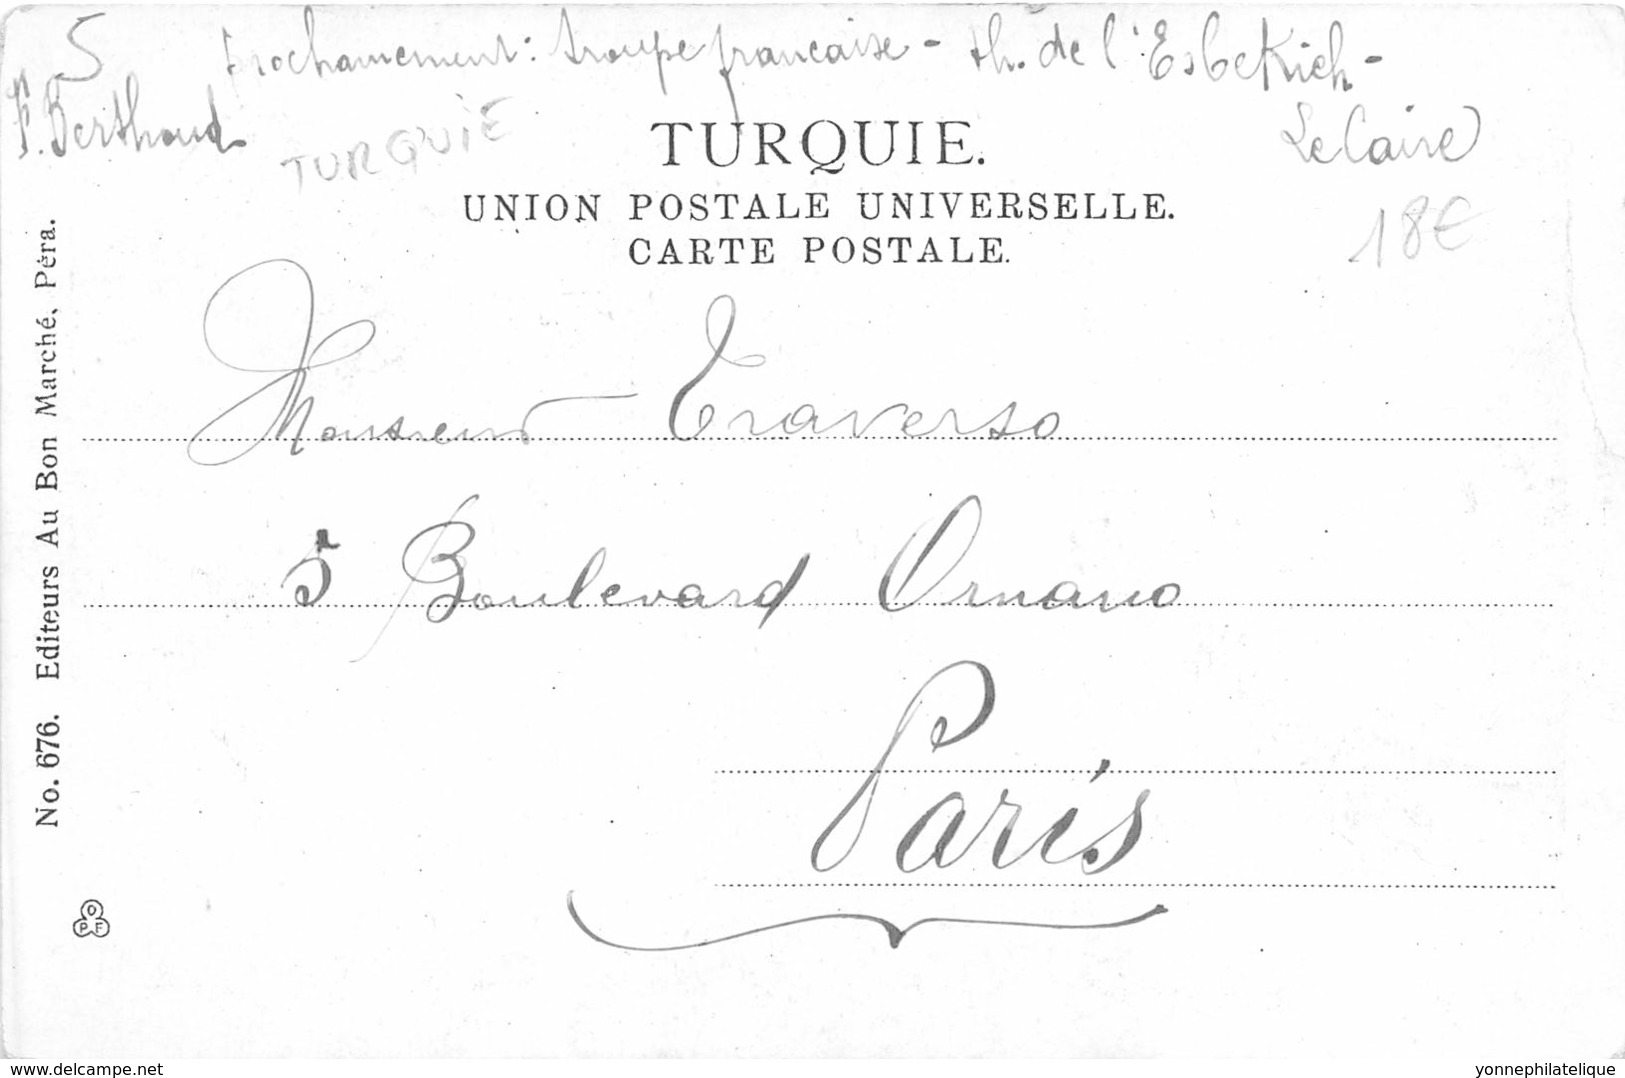 5
Prochainement: troupe française - th. de l'Esbekieh -
F. Berthoud
TURQUIE
Le Caire
TURQUIE.
UNION POSTALE UNIVERSELLE.
CARTE POSTALE.
18€
Monsieur Traverso
5 Boulevard Ornano
Paris
No. 676. Editeurs Au Bon Marché, Péra.
O
P F
delcampe.net
yonnephilatelique